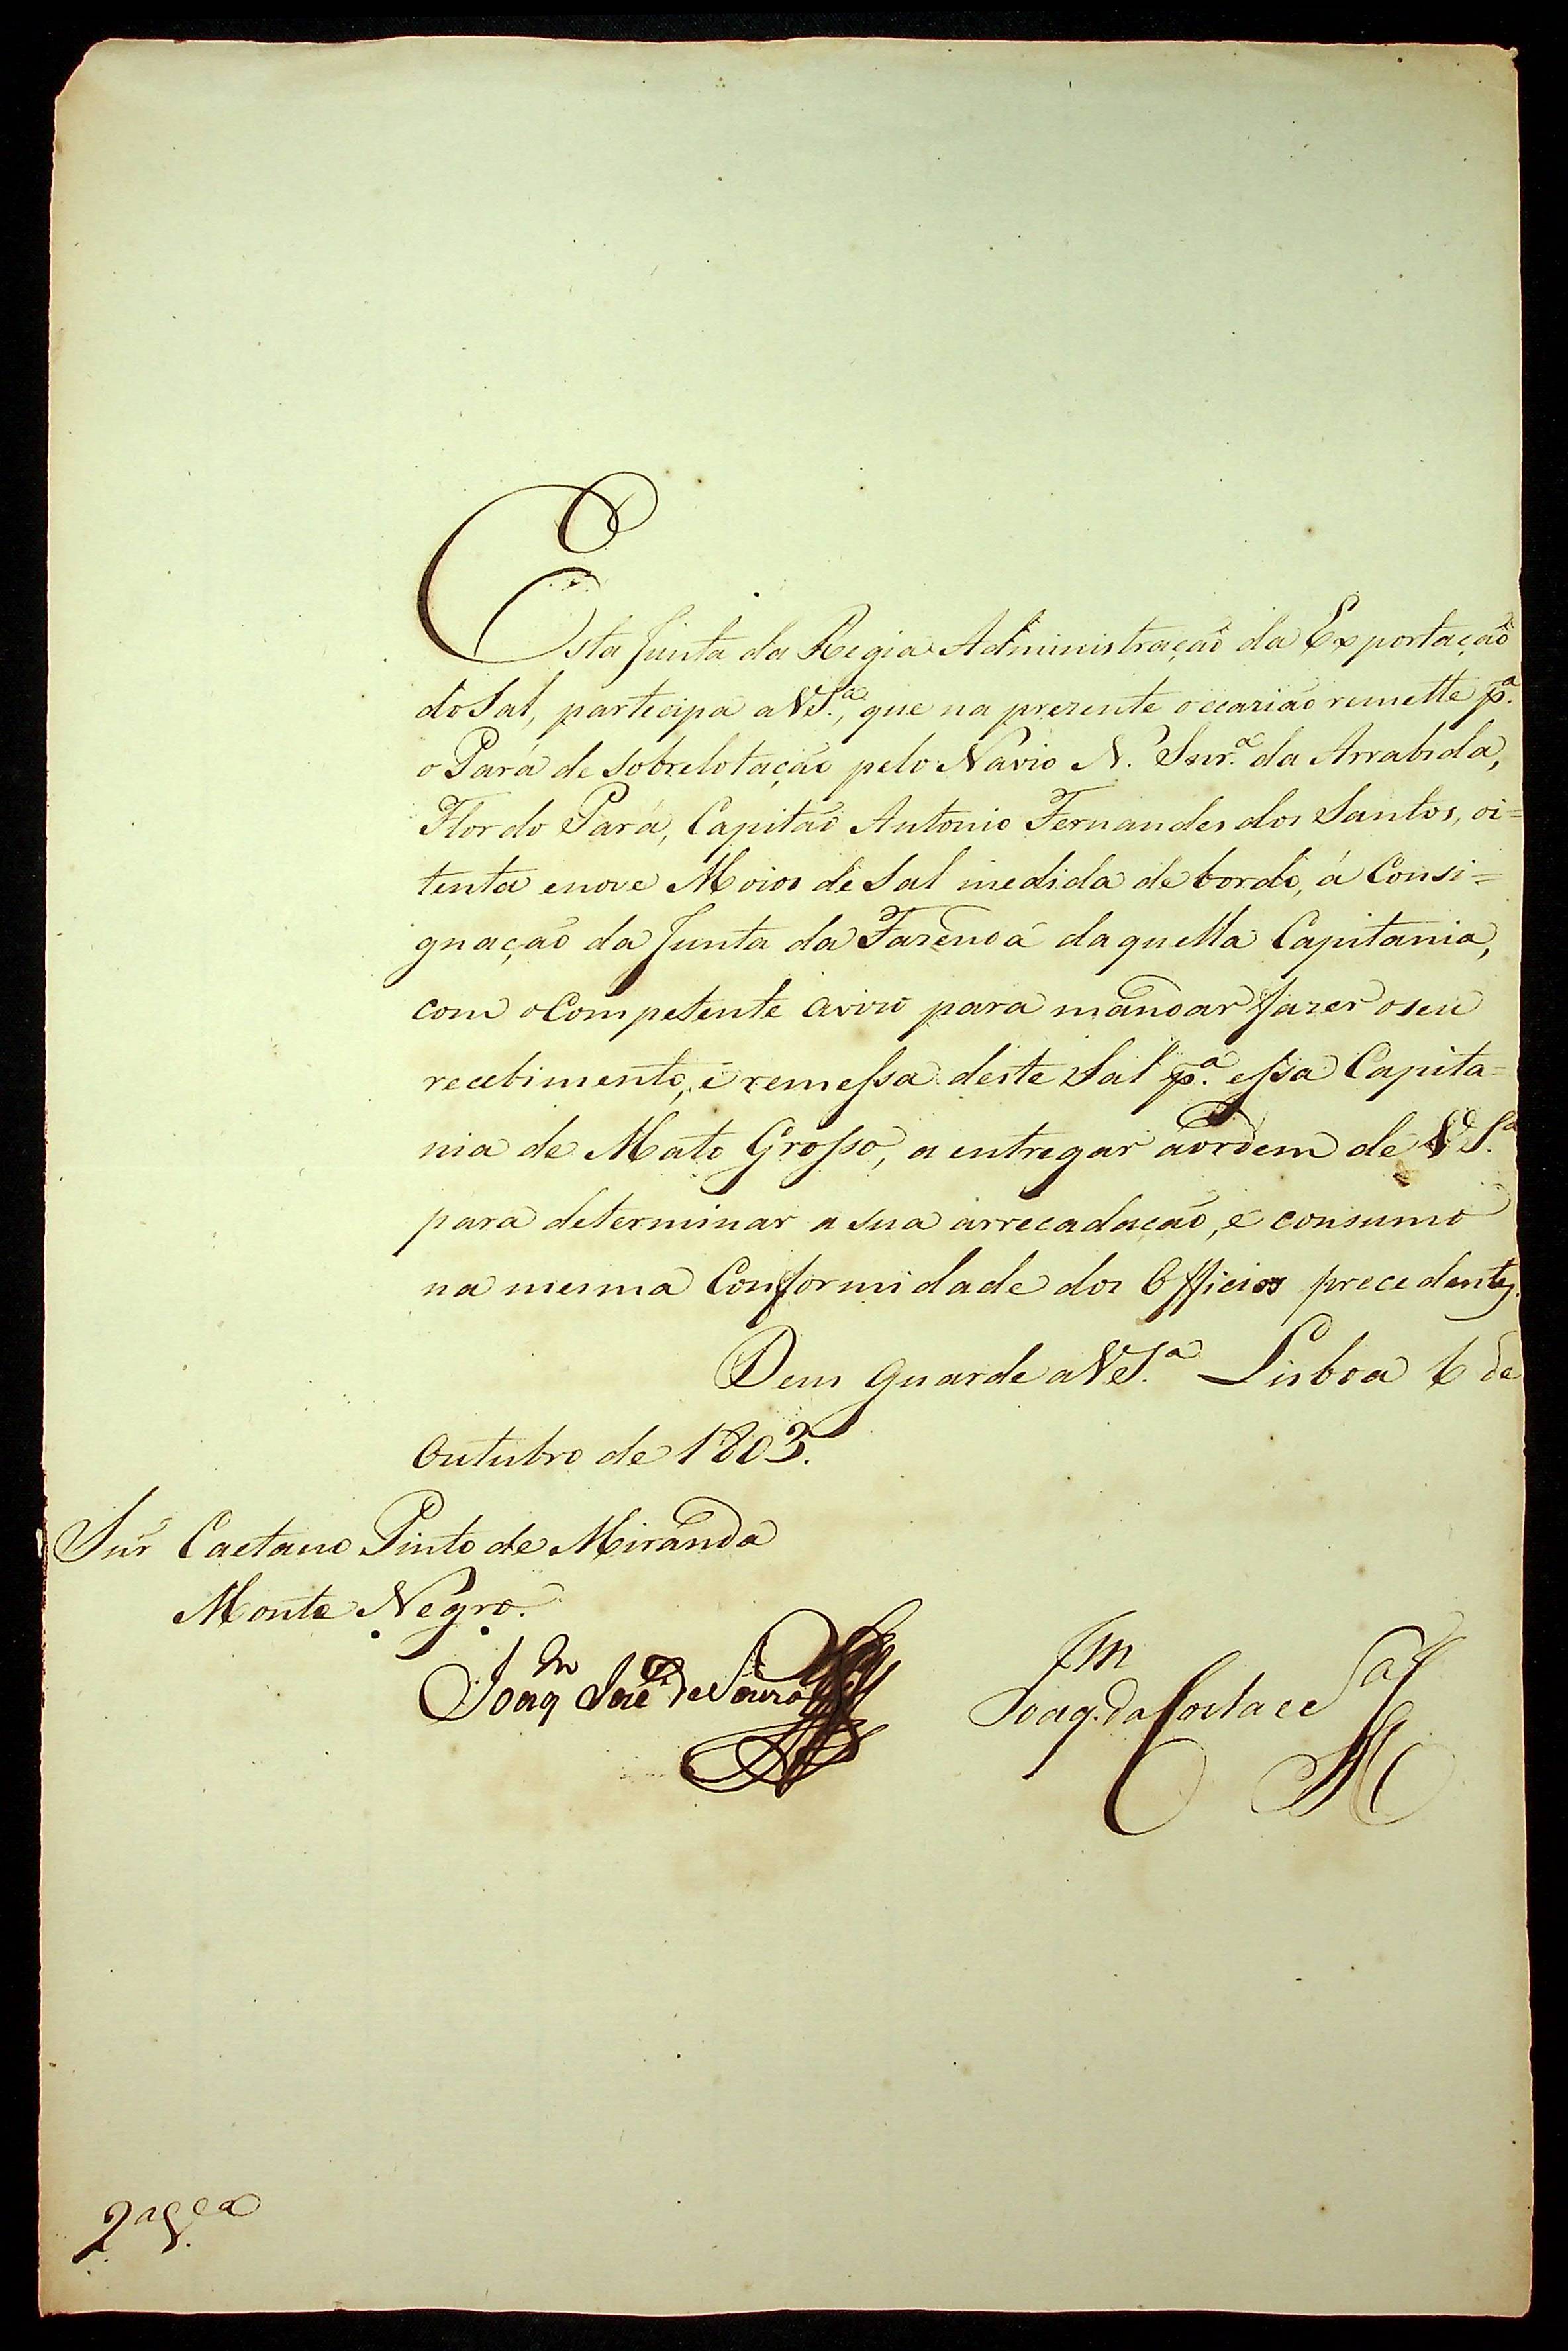 Esta Junta da Regia Administração da Exportação
do Sal, participa a VS.ª, que na prezente occazião remette p.ª
o Pará de sobrelotação pelo Navio N. Snr.ª da Arrabida,
Flor do Pará, Capitão Antonio Fernandes dos Santos, oi=
tenta e nove Moios de Sal medida de bordo, á Consi=
gnação da Junta da Fazenda daquella Capitania,
com o Competente avizo para mandar fazer o seu
recebimento, e remessa deste Sal p.ª essa Capita=
nia de Mato Grosso, a entregar á ordem de VS.ª
para determinar a sua arrecadação, e consumo
na mesma Conformidade dos Officios precedentes.
Deus guarde a VS.ª Lisboa 6 de
Outubro de 1803.
Snr Caetano Pinto de Miranda
Monte Negro.
Joaq.m José de Souza
Joaq.m da Costa e S.ª
2.ª